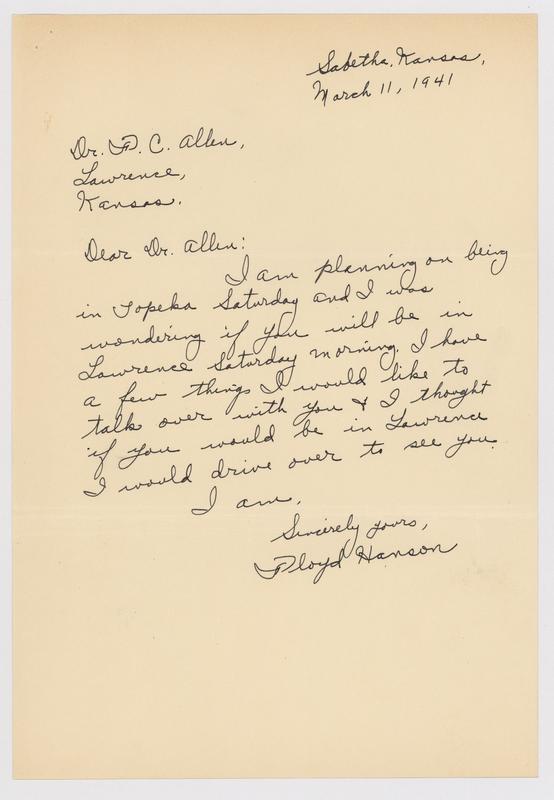 Sabetha, Kansas,
March 11, 1941
Dr. F. C. Allen,
Lawrence,
Kansas.
Dear Dr. Allen:
I am planning on being
in Topeka Saturday and I was
wondering if you will be in
Lawrence Saturday morning. I have
a few things I would like to
talk over with you & I thought
if you would be in Lawrence
I would drive over to see you.
I am,
Sincerely yours,
Floyd Hanson